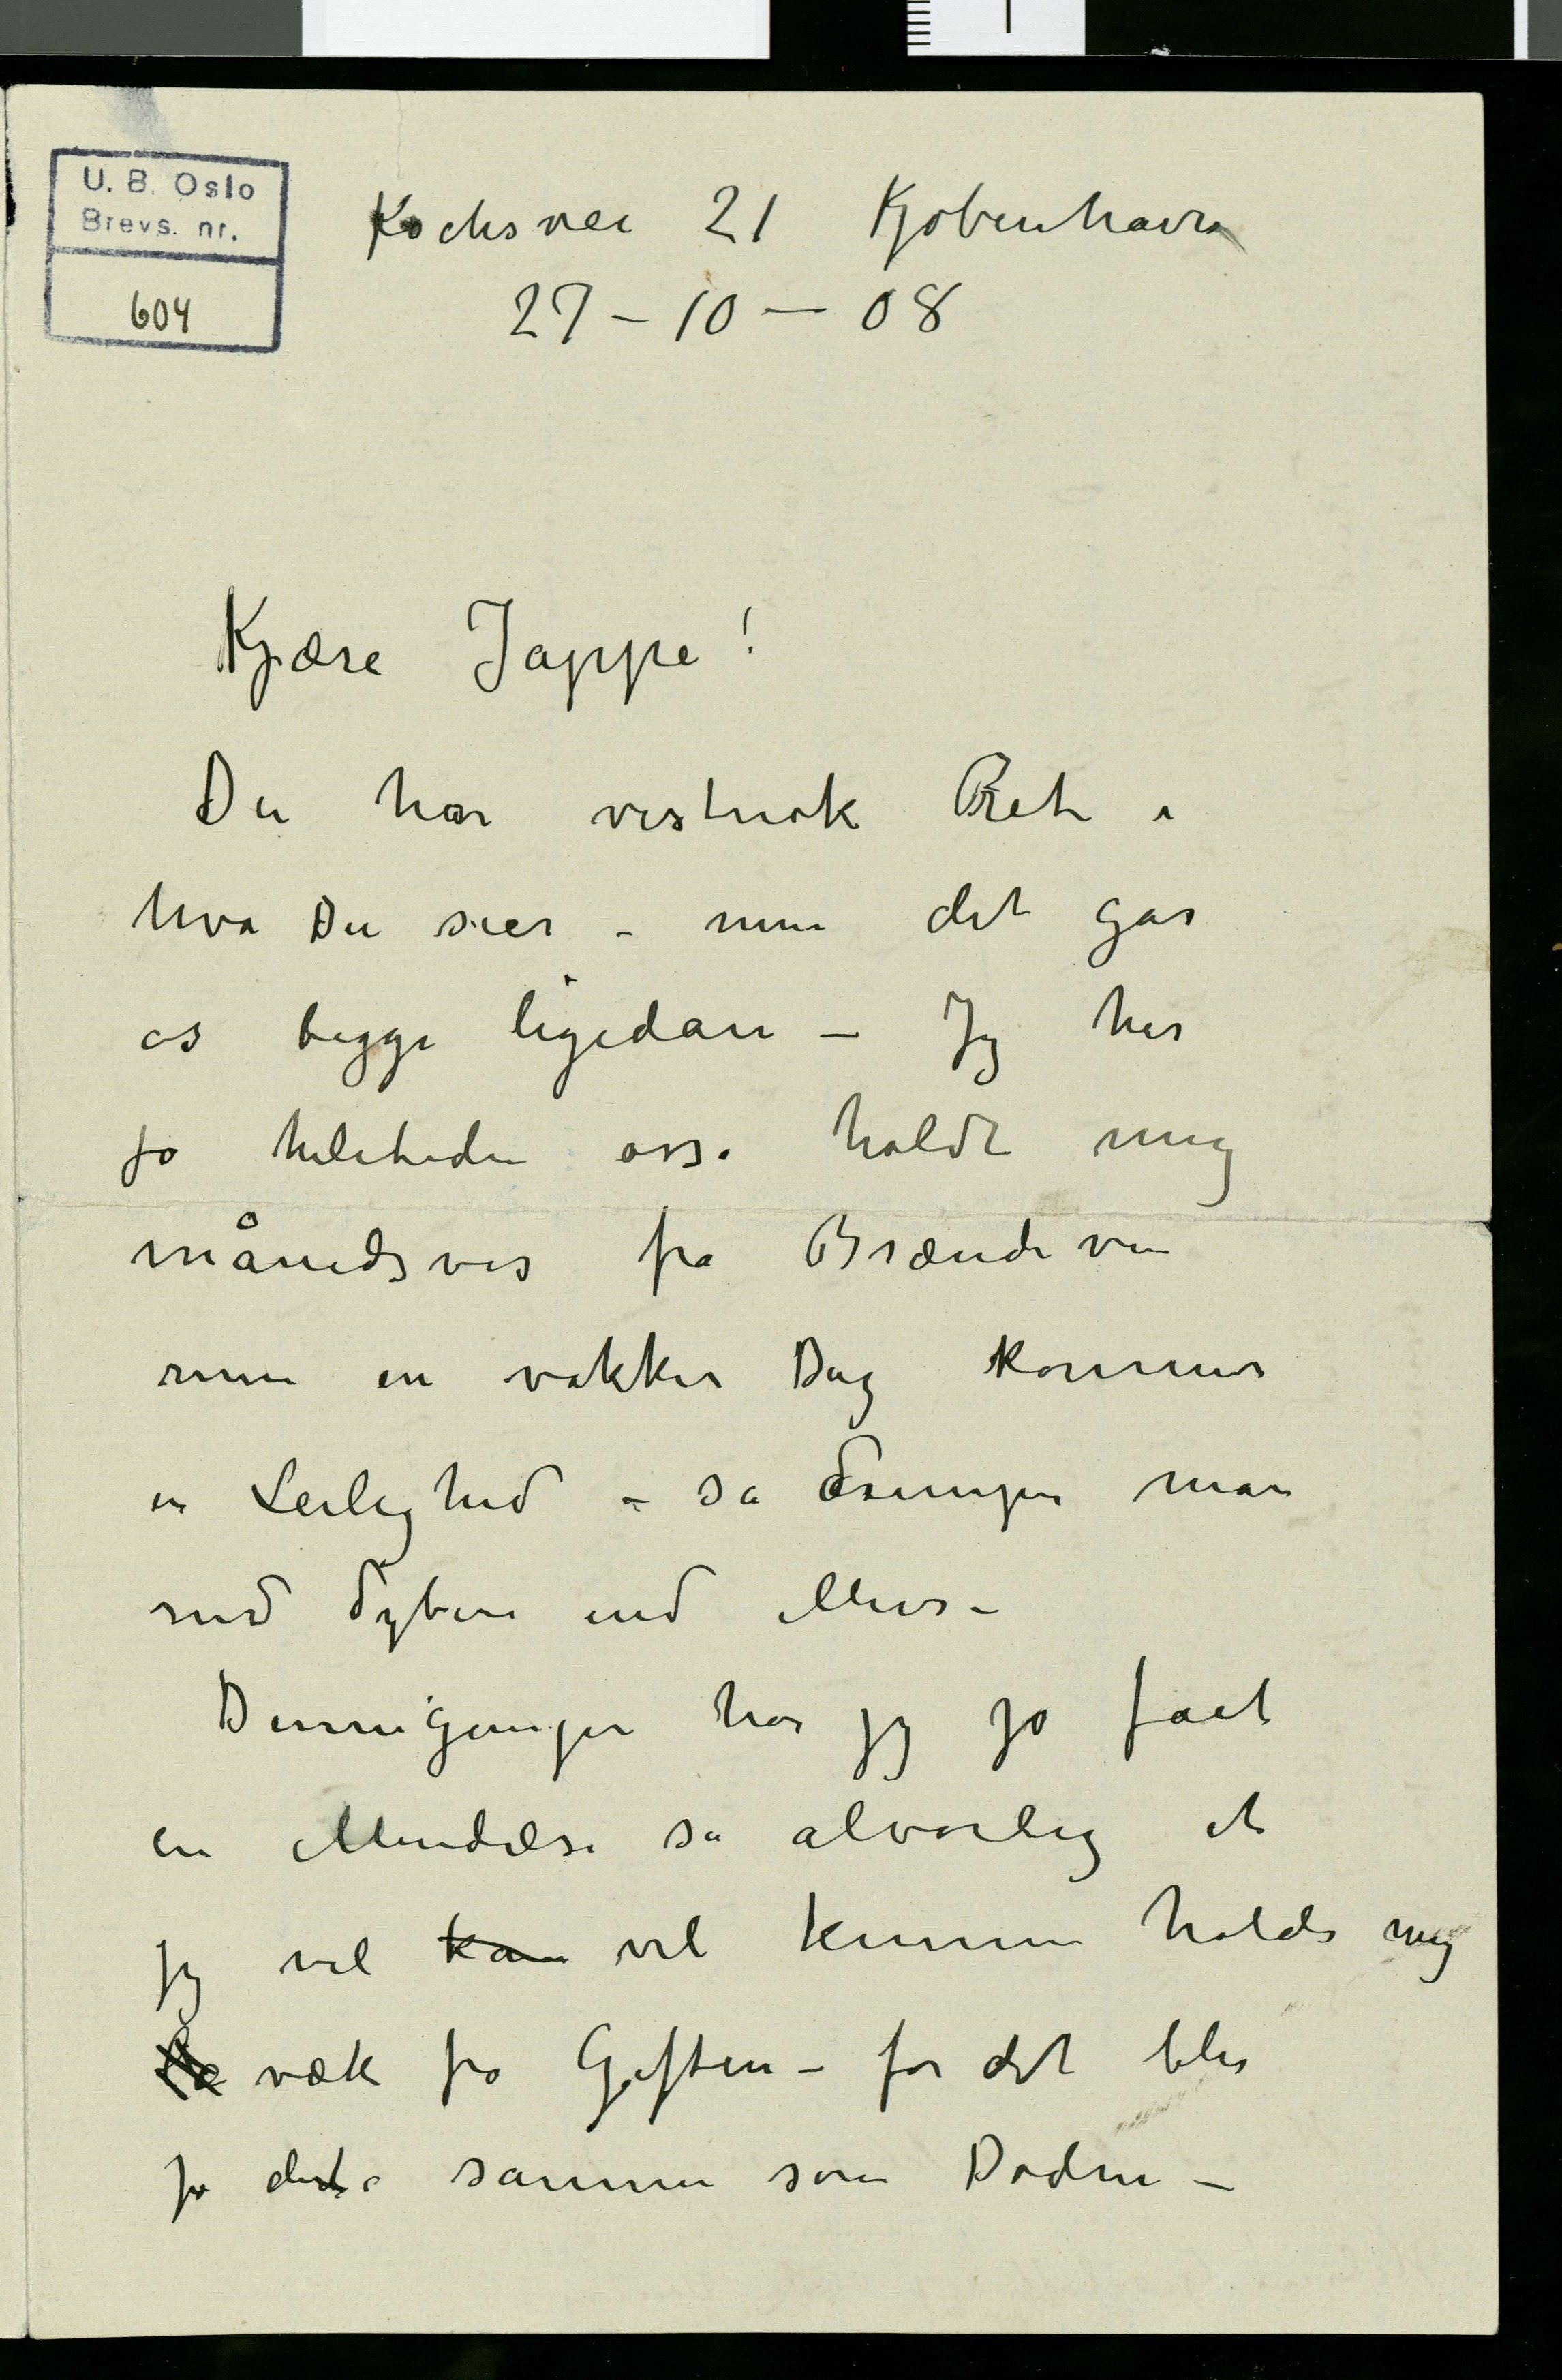 U. B. Oslo
Brevs. nr.
604
Kochsvei 21 Kjøbenhavn
27 – 10 – 08
Kjære Jappe!
Du har vistnok Ret i
hva Du sier – men det går
os begge ligedan – Jeg har
jo heletiden osså holdt mig
månedsvis fra Brændevin
men en vakker Dag kommer
en Leilighed – så dumper man
ned dybere end ellers –
Dennegangen har jeg jo fået
en Mindelse så alvorlig at
jeg vel kan vel kunne holde mig
væk fra Giften – for det blir
jo det samme som Døden –